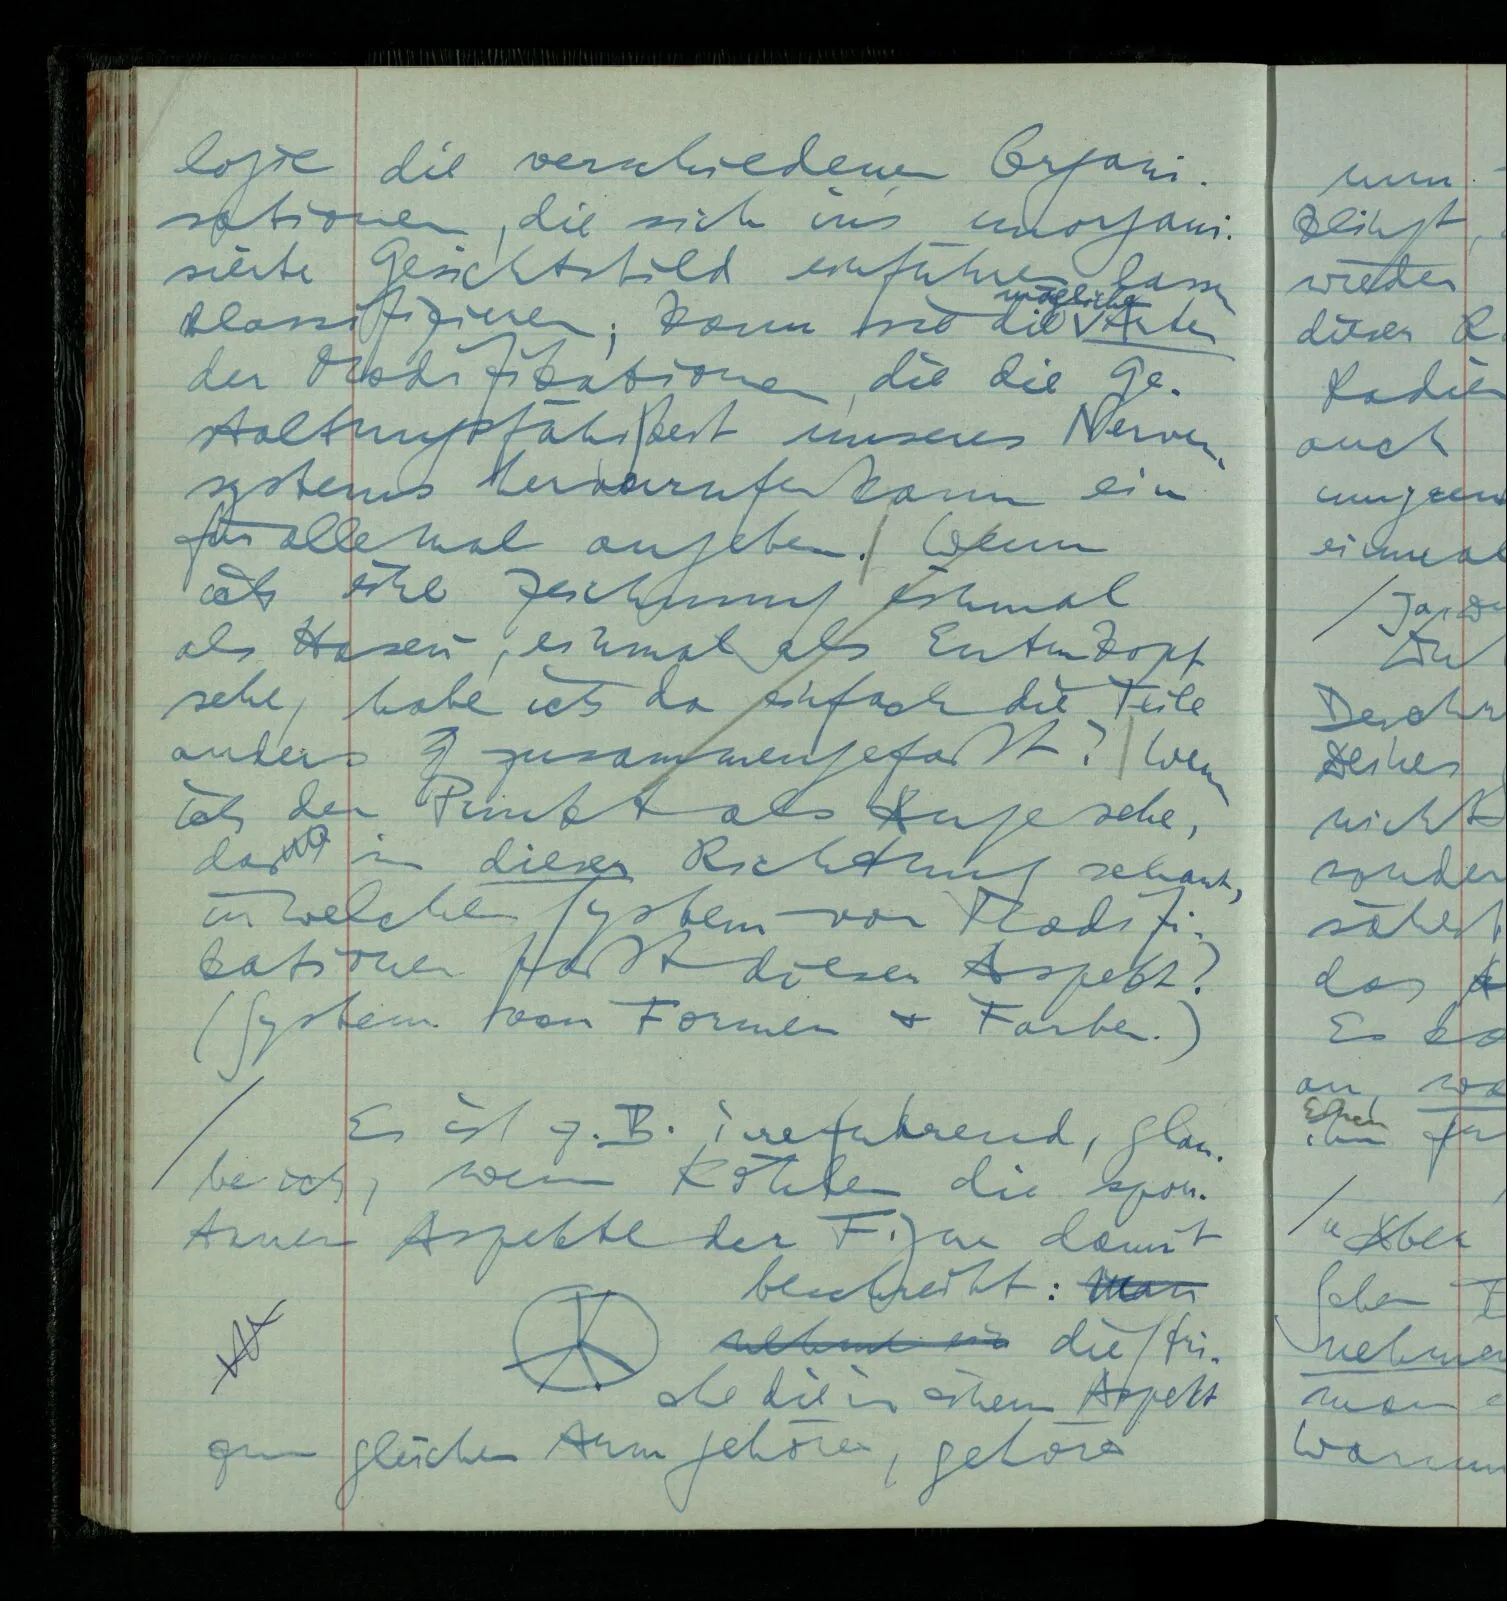 logie die verschiedenen Organi-
sationen, die sich ins unorgani-
sierte Gesichtsbild einführen lassen
klassifizieren; kann so die mögliche Arten
der Modifikationen, die die Ge-
staltungsfähigkeit unseres Nerven-
systems hervorrufen kann ein
für alle mal angeben. / Wenn
ich eine Zeichnung einmal
als Hasen, einmal als Entenkopf
sehe, habe ich da einfach die Teile
anders zusammengefaßt? / Wenn
ich den Punkt als Auge sehe,
das in dieser Richtung schaut,
in welchen System von Modifi-
kationen paßt dieser Aspekt?
(System von Formen & Farben.)
/ Es ist z.B. irreführend, glau-
be ich, wenn Köhler die spon-
tanen Aspekte der Figur damit
beschreibt: Man
nehme ein die Stri-
che die in einem Aspekt
zum gleichen Arm gehören, gehören
nun
klingt,
wieder
dieser
Radie
auch
einmal
/
nicht
das
Es
an,
Einen
ihm
/ "Aber
schen
nehmen
man
Warum